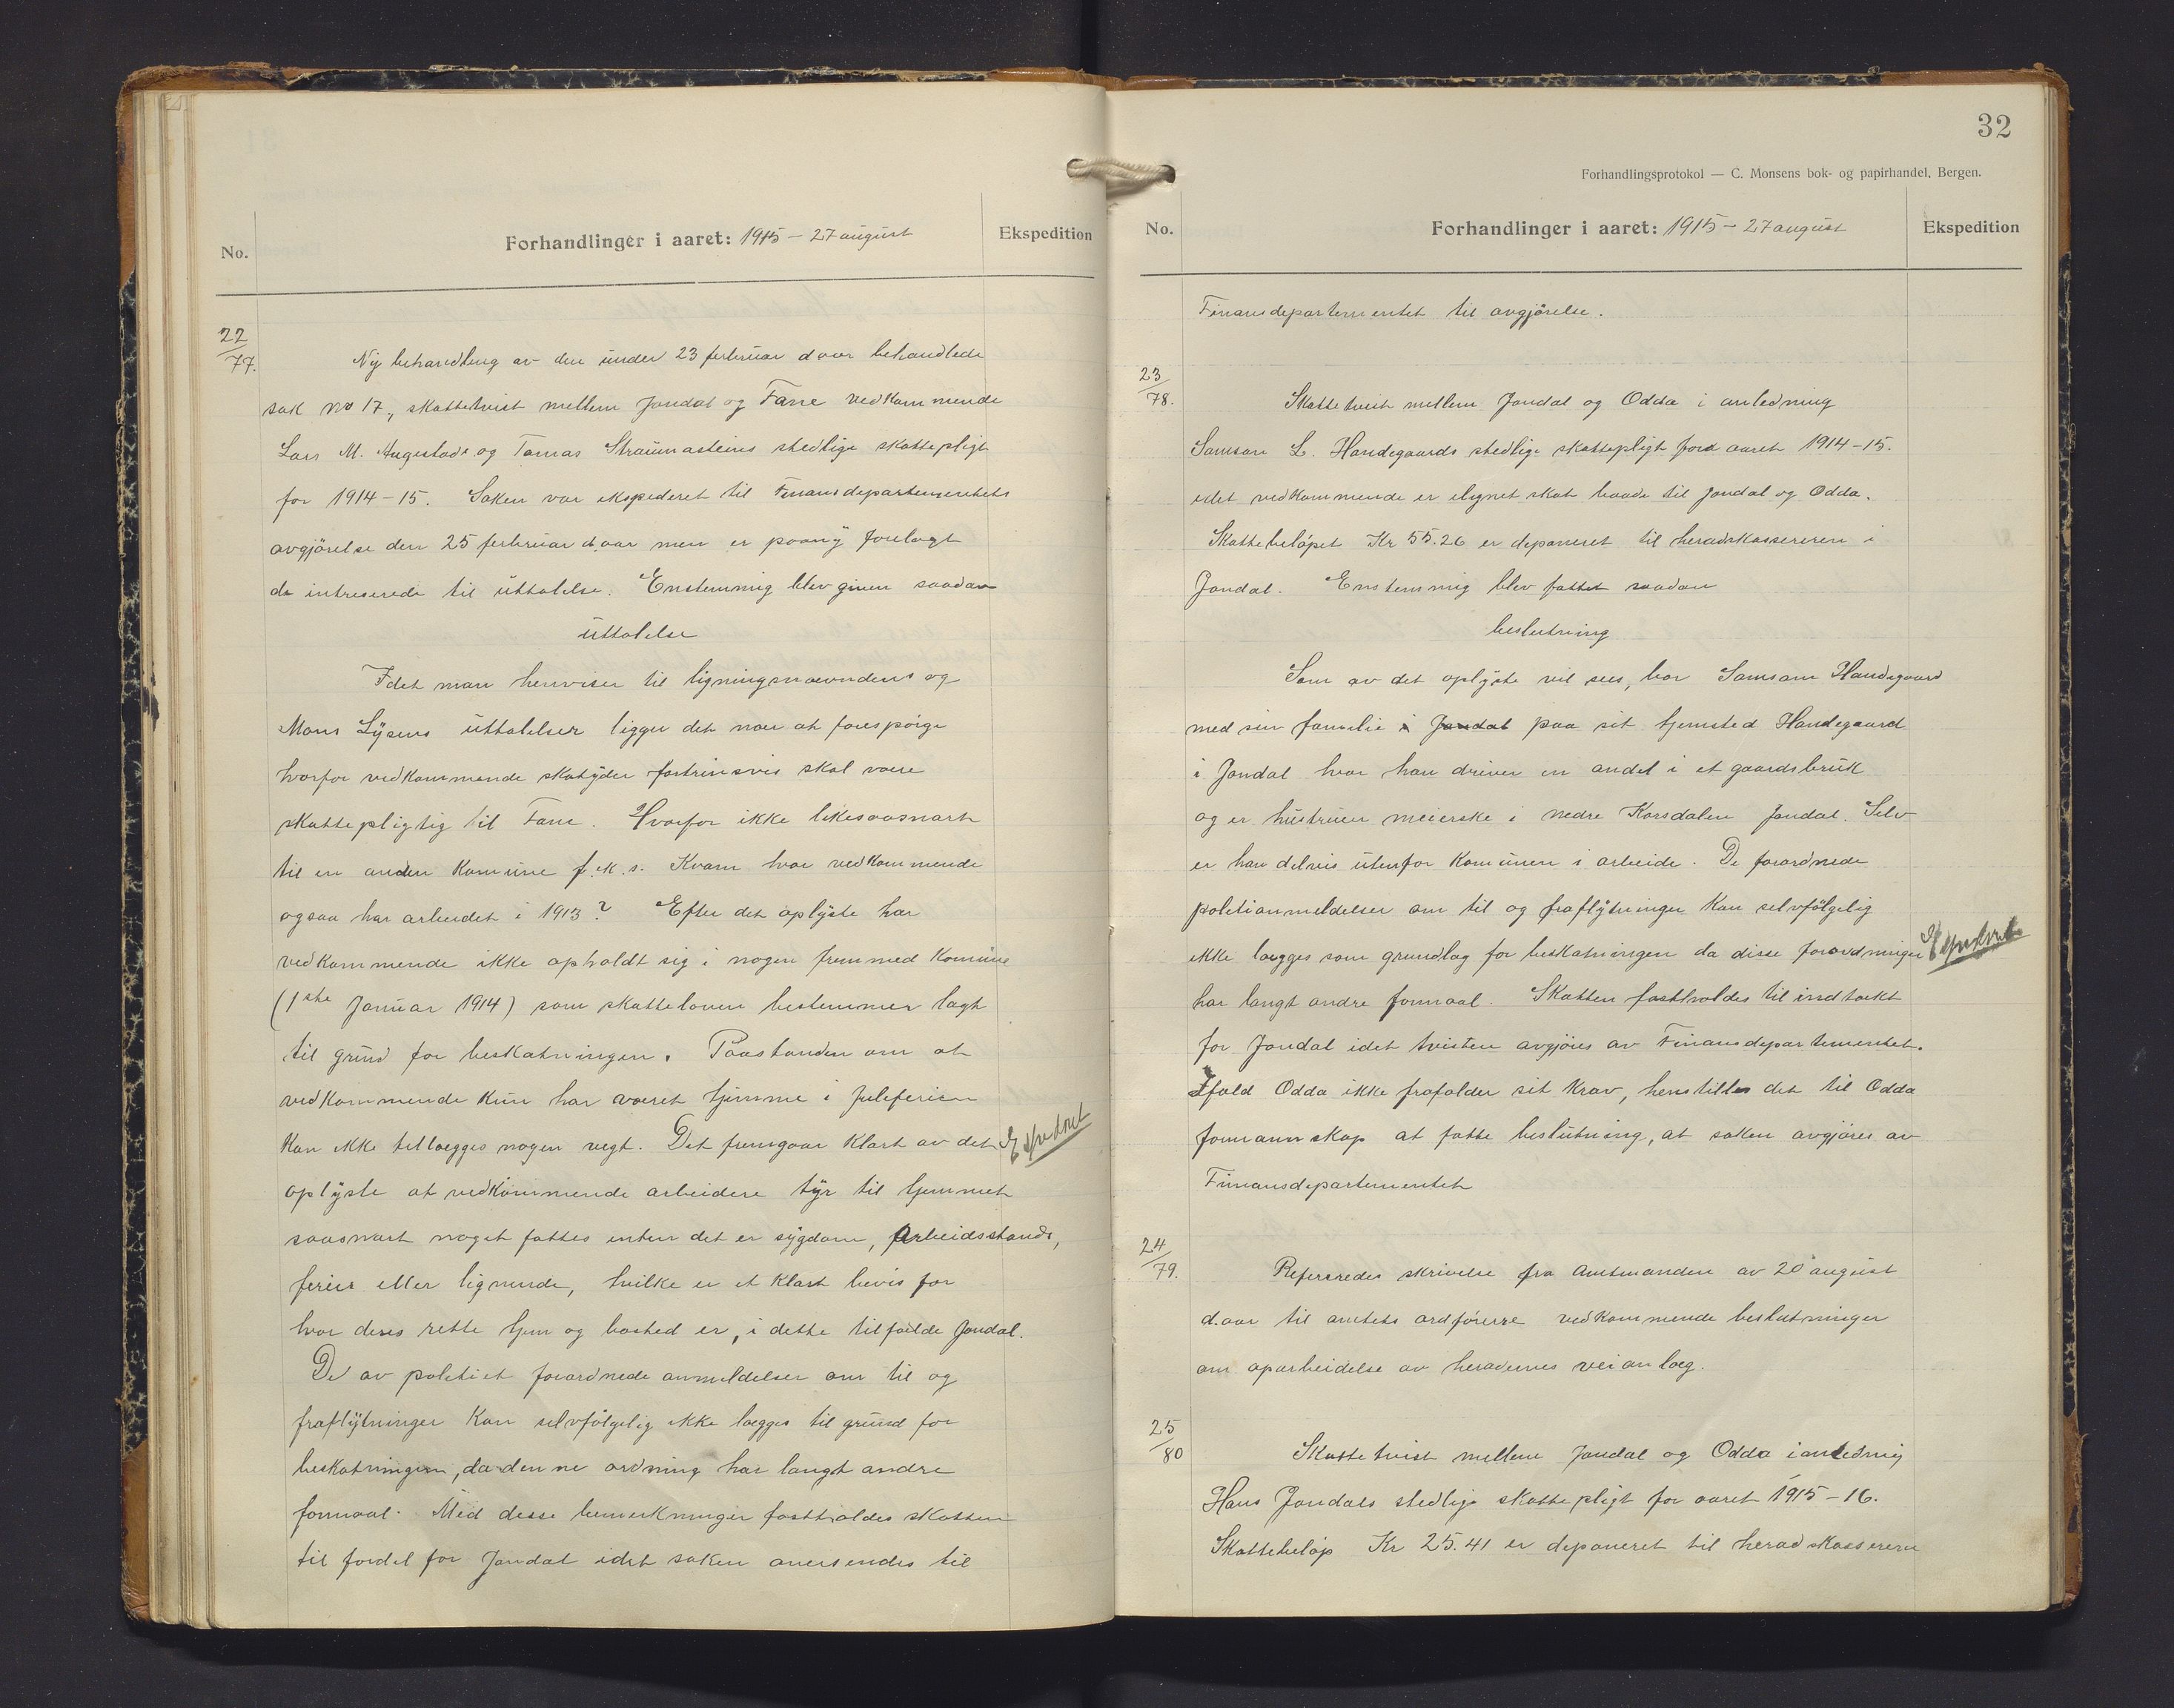 No.
Forhandlinger i aaret: 1915 – 27 august
Ekspedition
22/77.
Ny behandling av den under 23 februar d aar behandlede
sak no 17, skattetvist mellem Jondal og Fane vedkommende
Lars M. Augestads og Tomas Straumasteins stedlige skattepligt
for 1914-15. Saken var ekspederet til Finansdepartementets
avgjørelse den 25 februar d. aar men er paany forelagt
de intreserede til uttalelse. Enstemmig blev given saadan
uttalelse
Idet man henviser til ligningsnævndens og
Mons Lysens uttalelser ligger det nær at forespørge
hvorfor vedkommende skatyder fortrinsvis skal være
skattepligtig til Fane. Hvorfor ikke likesaasnart
til en anden komune f. ek. s. Kvam hvor vedkommende
ogsaa har arbeidet i 1913? Efter det oplyste har
vedkommende ikke opholdt sig i nogen fremmed komune
(1ste Januar 1914) som skatteloven bestemmer lagt
til grund for beskatningen. Paastanden om at
vedkommende kun har været hjemme i Juleferien
kan ikke tillægges nogen vegt. Det fremgaar klart av det
oplyste at vedkommende arbeidere tyr til hjemmet
saasnart noget fattes enten det er sygdom, arbeidsstands,
ferier eller lignende, hvilke er et klart bevis for
hvor deres rette hjem og bosted er, i dette tilfælde Jondal.
De av politiet forordnede anmeldelser om til og
fraflytninger kan selvfølgelig ikke lægges til grund for
beskatningen, da denne ordning har langt andre
formaal. Med disse bemerkninger fastholdes skatten
til fordel for Jondal idet saken oversendes til
32
Forhandlingsprotokol — C. Monsens bok- og papirhandel, Bergen.
No.
Forhandlinger i aaret: 1915 – 27 august
Ekspedition
Finansdepartementet til avgjørelse.
23/78.
Skattetvist mellem Jondal og Odda i anledning
Samson L. Handegaards stedlige skattepligt for aaret 1914-15.
idet vedkommende er ilignet skat baade til Jondal og Odda.
Skattebeløpet Kr 55.26 er deponeret til heradskassereren i
Jondal. Enstemmig blev fattet saadan
beslutning
Som av det oplyste vil sees, bor Samson Handegaard
med sin familie i Jondal paa sit hjemsted Handegaard
i Jondal hvor han driver en andel i et gaardsbruk
og er hustruen meierske i nedre Korsdalen Jondal. Selv
er han delvis utenfor komunen i arbeide. De forordnede
politianmeldelser om til og fraflytninger kan selvfølgelig
ikke lægges som grundlag for beskatningen da disse forordninger
har langt andre formaal. Skatten fastholdes til indtækt
for Jondal idet tvisten avgjøres av Finansdepartementet.
Ifald Odda ikke frafalder sit krav, henstilles det til Odda
formannskap at fatte beslutning, at saken avgjøres av
Finansdepartementet
24/79.
Refereredes skrivelse fra Amtmanden av 20 august
d. aar til amtets ordførere vedkommende beslutninger
om oparbeidelse av heradernes veianlæg.
25/80
Skattetvist mellem Jondal og Odda i anledning
Hans Jondals stedlige skattepligt for aaret 1915-16.
Skattebeløp Kr 25.41 er deponeret til heradskassereren